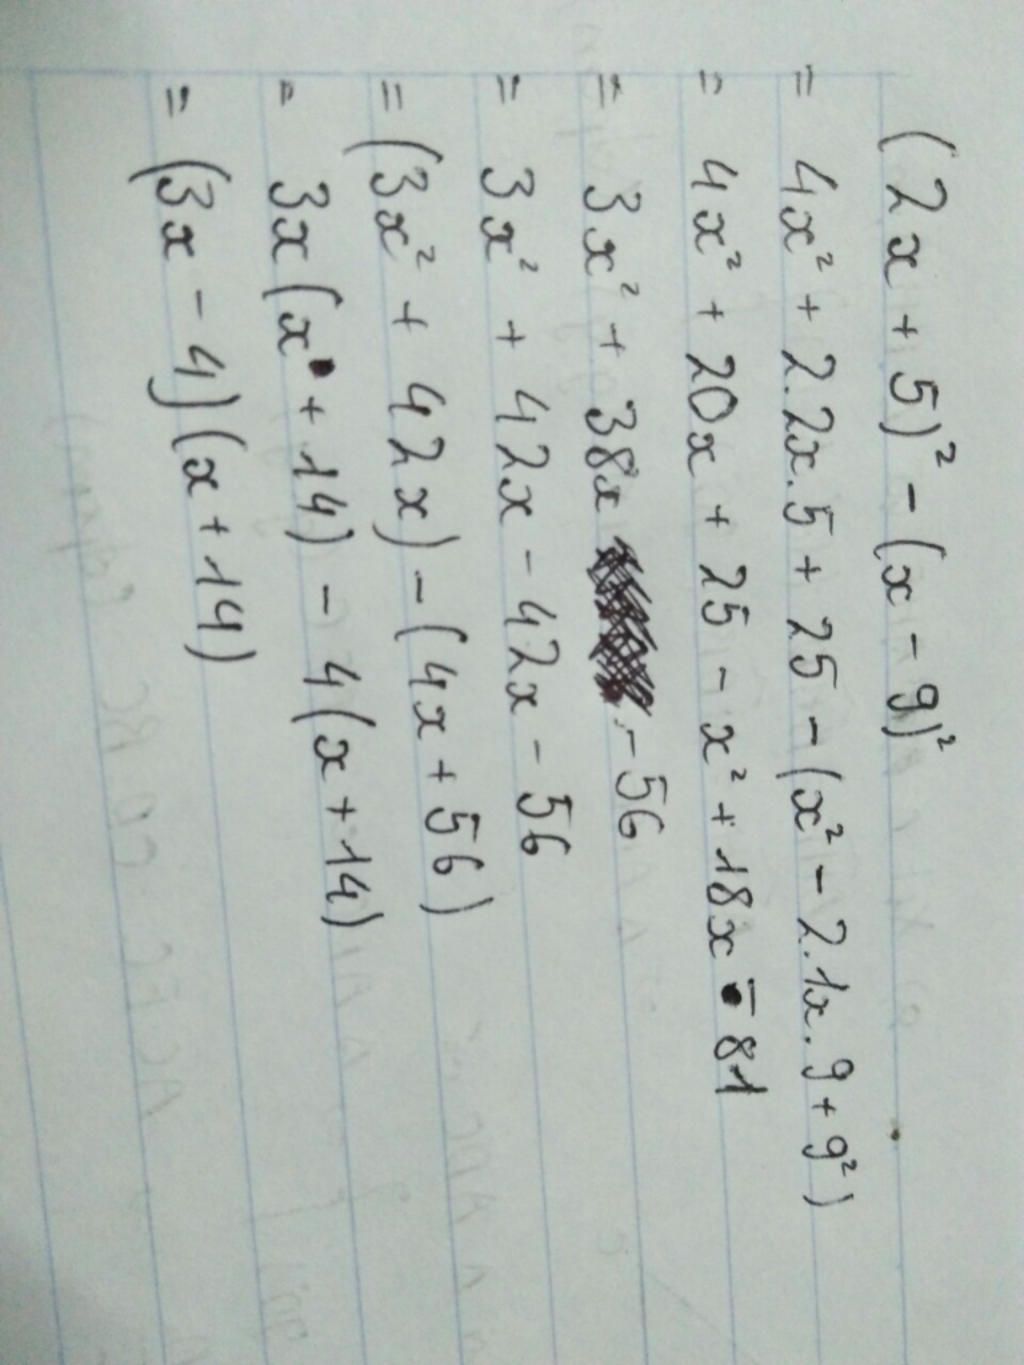 (2x + 5)² - (x - 9)²
= 4x² + 2.2x.5 + 25 - (x² - 2.1x.9 + 9²)
= 4x² + 20x + 25 - x² + 18x - 81
= 3x² + 38x - 56
= 3x² + 42x - 42x - 56
= (3x² + 42x) - (4x + 56)
= 3x(x + 14) - 4(x + 14)
= (3x - 4)(x + 14)